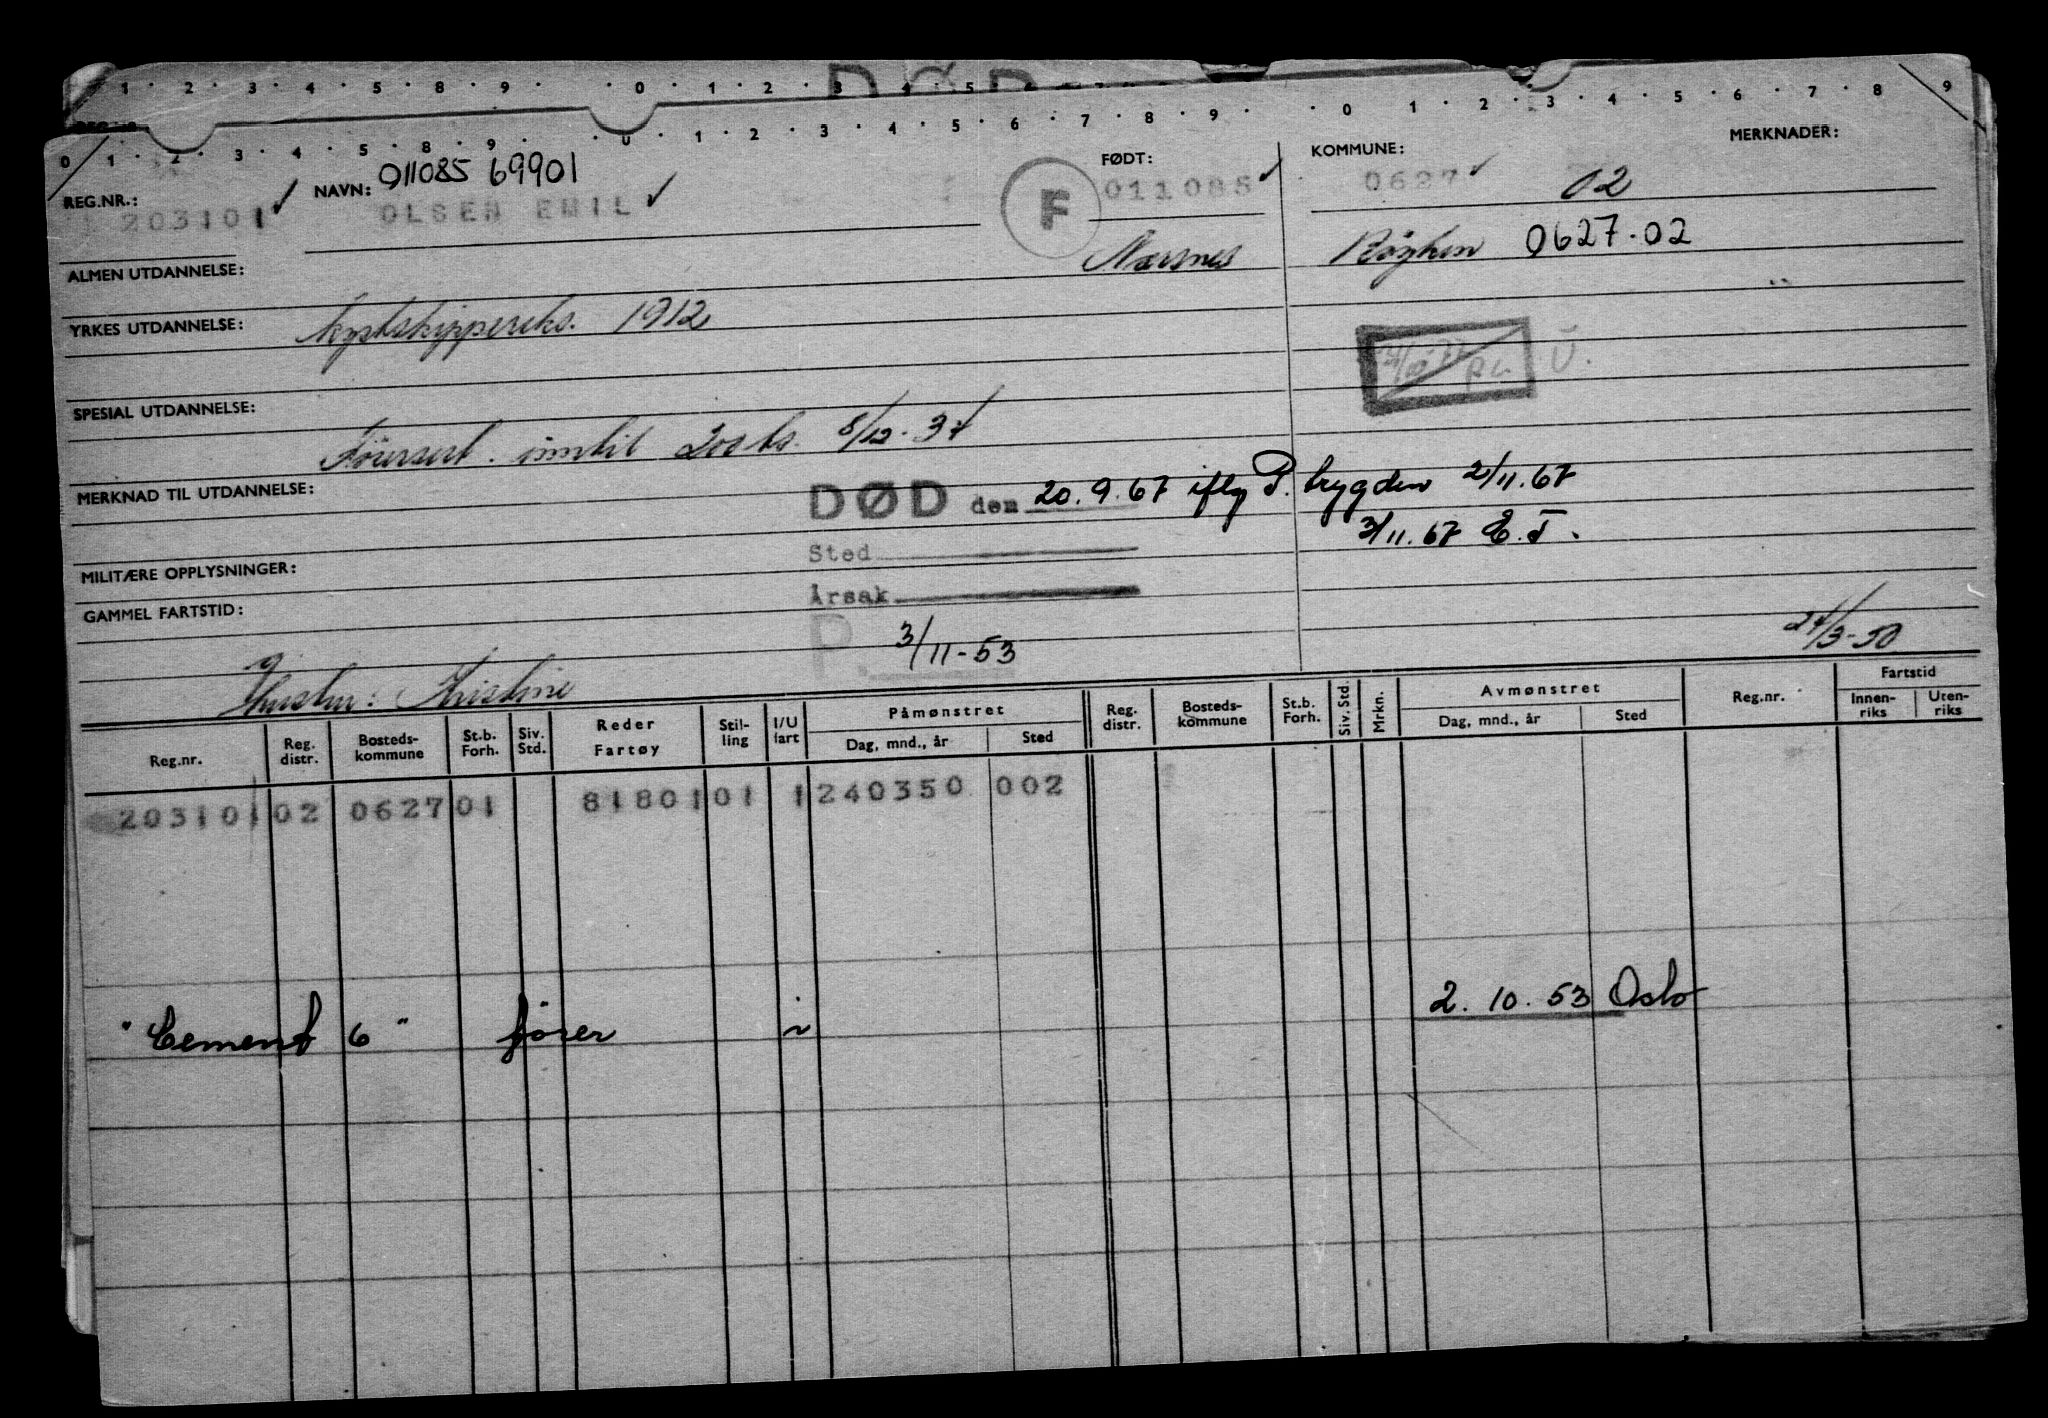 DØD
1 · 2 · 3 · 4 · 5 · 8 · 9 · · 0 · 1 · 2 · 3 · 4 · 5
0 · 1 · 2 · 3 · 4 · 5 · 8 · 9 · · 0 · 1 · 2 · 3 · 4 · 5 · 6 · 7 · 8 · 9 · · 0 · 1 · 2 · 3 · 4 · 5 · 6 · 7 · 8 · 9
REG.NR.: 203101 ✓
NAVN: 011085 69901
OLSEN EMIL ✓
F
FØDT: 011085 ✓
Nærsnes
KOMMUNE: 0627 ✓ 02
Röyken 0627.02
MERKNADER:
ALMEN UTDANNELSE:
YRKES UTDANNELSE: Kystskippereks. 1912
SPESIAL UTDANNELSE:
Førersert. inntil 200 ts. 8/12-37
Ü.
MERKNAD TIL UTDANNELSE:
DØD den 20.9.67 iflg P. trygden 2/11.67
3/11.67 E.T.
Sted
MILITÆRE OPPLYSNINGER:
Årsak
GAMMEL FARTSTID:
P. 3/11-53
24/3-50
Hustru: Kristine
Reg.nr. Reg. distr. Bosteds-kommune St.b. Forh. Siv. Std. Reder Fartøy Stil-ling I/U fart Påmønstret Dag, mnd., år Sted Reg. distr. Bosteds-kommune St.b. Forh. Siv. Std. Mrkn. Avmønstret Dag, mnd., år Sted Reg.nr. Fartstid Innen-riks Uten-riks
203101 02 0627 01 81801 01 1 240350 002
"Cement 6" fører 2.10.53 Oslo